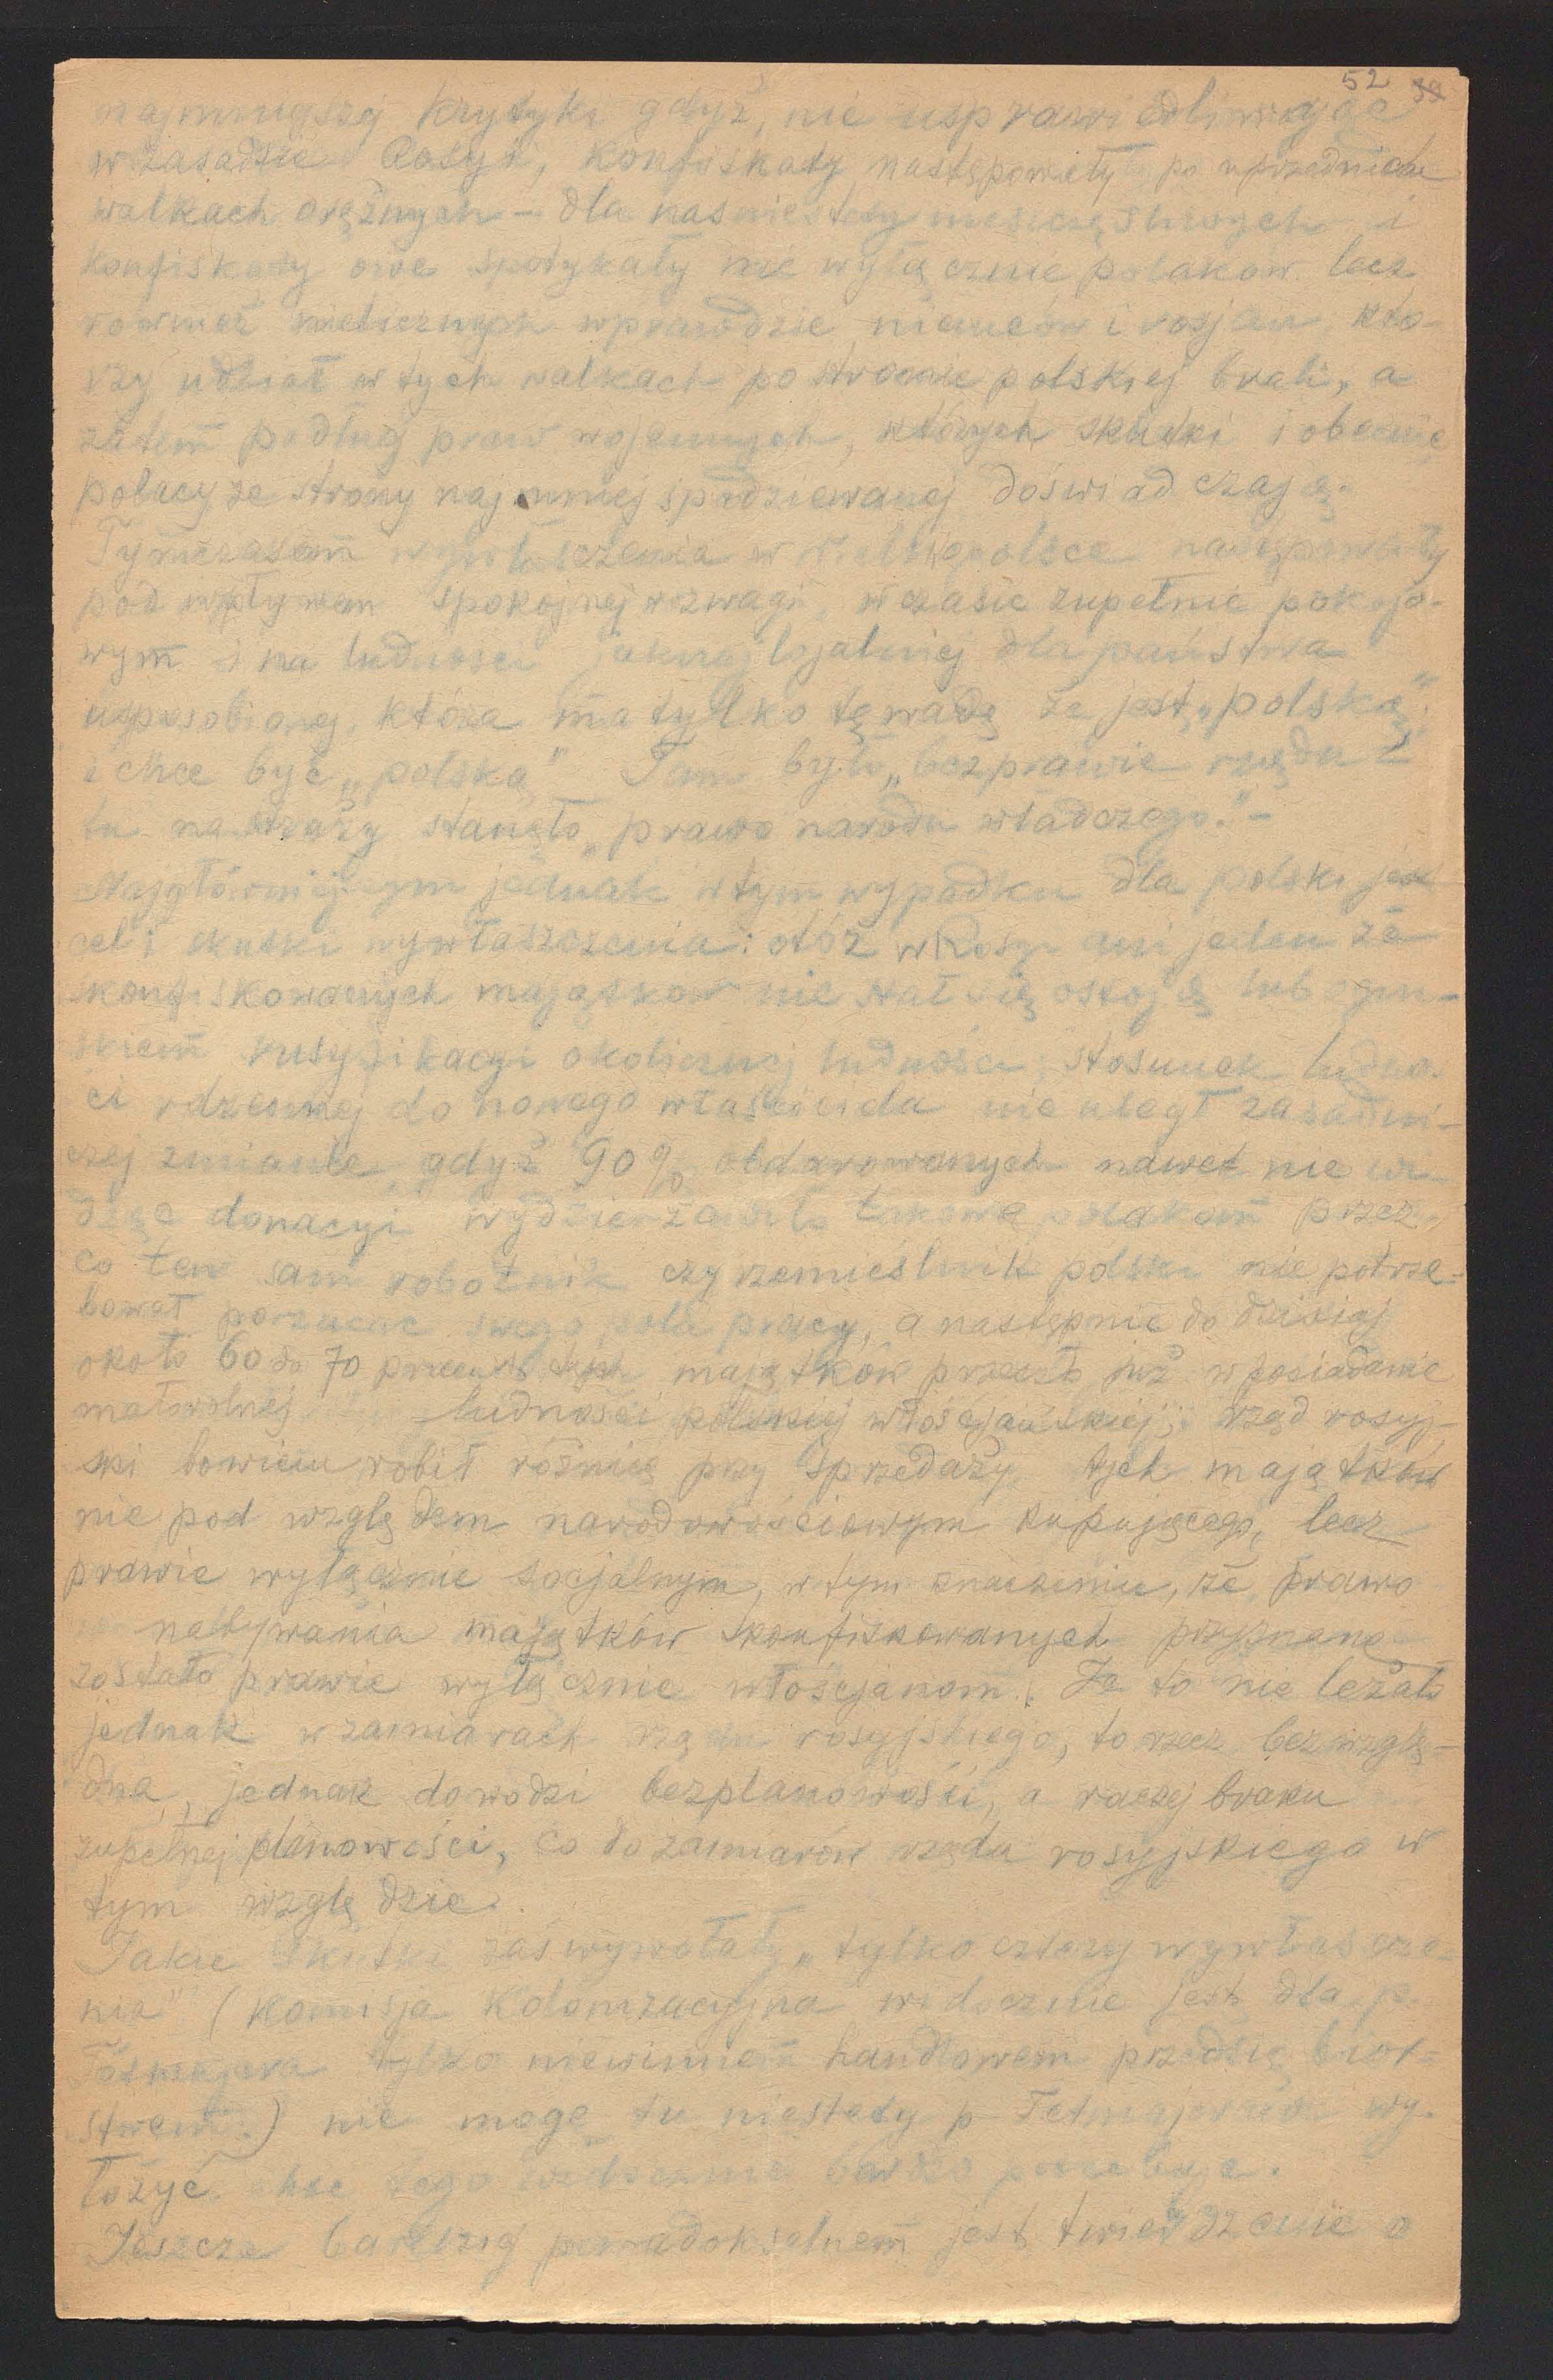 52 39
najmniejszej krytyki gdyż, nie usprawiedliwiając
w zasadzie Rosyi, konfiskaty następowały po uprzednich
walkach orężnych – dla nas niestety nieszczęśliwych i
konfiskaty owe spotykały nie wyłącznie polaków lecz
rownież nielicznych wprawdzie niemców i rosjan, któ-
rzy udział w tych walkach po stronie polskiej brali, a
zatem podług praw wojennych, których skutki i obecnie
polacy ze strony najmniej spodziewanej doświadczają.
Tymczasem wywłaszczenia w Wielkopolsce następowały
pod wpływem spokojnej rozwagi, w czasie zupełnie pokojo-
wym i na ludności jaknajlojalniej dla państwa
usposobionej, która ma tylko tę wadę że jest „polską"
i chce być „polską" Tam było „bezprawie rządu"
tu na straży stanęło „prawo narodu władczego." –
Najgłówniejszym jednak w tym wypadku dla polski jest
cel i skutki wywłaszczenia: otóż w Rosyi ani jeden ze
skonfiskowanych majątków nie stał się ostoją lub ogni-
skiem rusyfikacyi okolicznej ludności, stosunek ludno-
ci rdzennej do nowego właściciela nie uległ zasadni-
czej zmianie, gdyż 90% obdarowanych nawet nie wi-
dząc donacyi wydzierżawiło takowe polakom przez-
co ten sam robotnik czy rzemieślnik polski nie potrze-
bował porzucać swego pola pracy, a następnie do dzisiaj
około 60 do 70 procent tych majątków przeszło już w posiadanie
małorolnej ludności polskiej włościańskiej; rząd rosyj-
ski bowiem robił różnicę przy sprzedaży tych majątków
nie pod względem narodowościowym kupującego, lecz
prawie wyłącznie socjalnym, w tym znaczeniu, że prawo
nabywania majątków skonfiskowanych przyznane
zostało prawie wyłącznie włościanom. Że to nie leżało
jednak w zamiarach rządu rosyjskiego, to rzecz bezwzglę-
dna, jednak dowodzi bezplanowości, a raczej braku
zupełnej planowości, co do zamiarów rządu rosyjskiego w
tym względzie.
Jakie skutki zaś wywołały „tylko cztery wywłaszcze-
nia" (Komisja Kolonizacyjna widocznie jest dla p.
Tetmajera tylko niewinnem handlowem przedsiębior-
stwem.) nie mogę tu niestety p Tetmajerowi wy-
łożyć choć tego widocznie bardzo potrzebuje.
Jeszcze bardziej paradoksalnem jest twierdzenie o